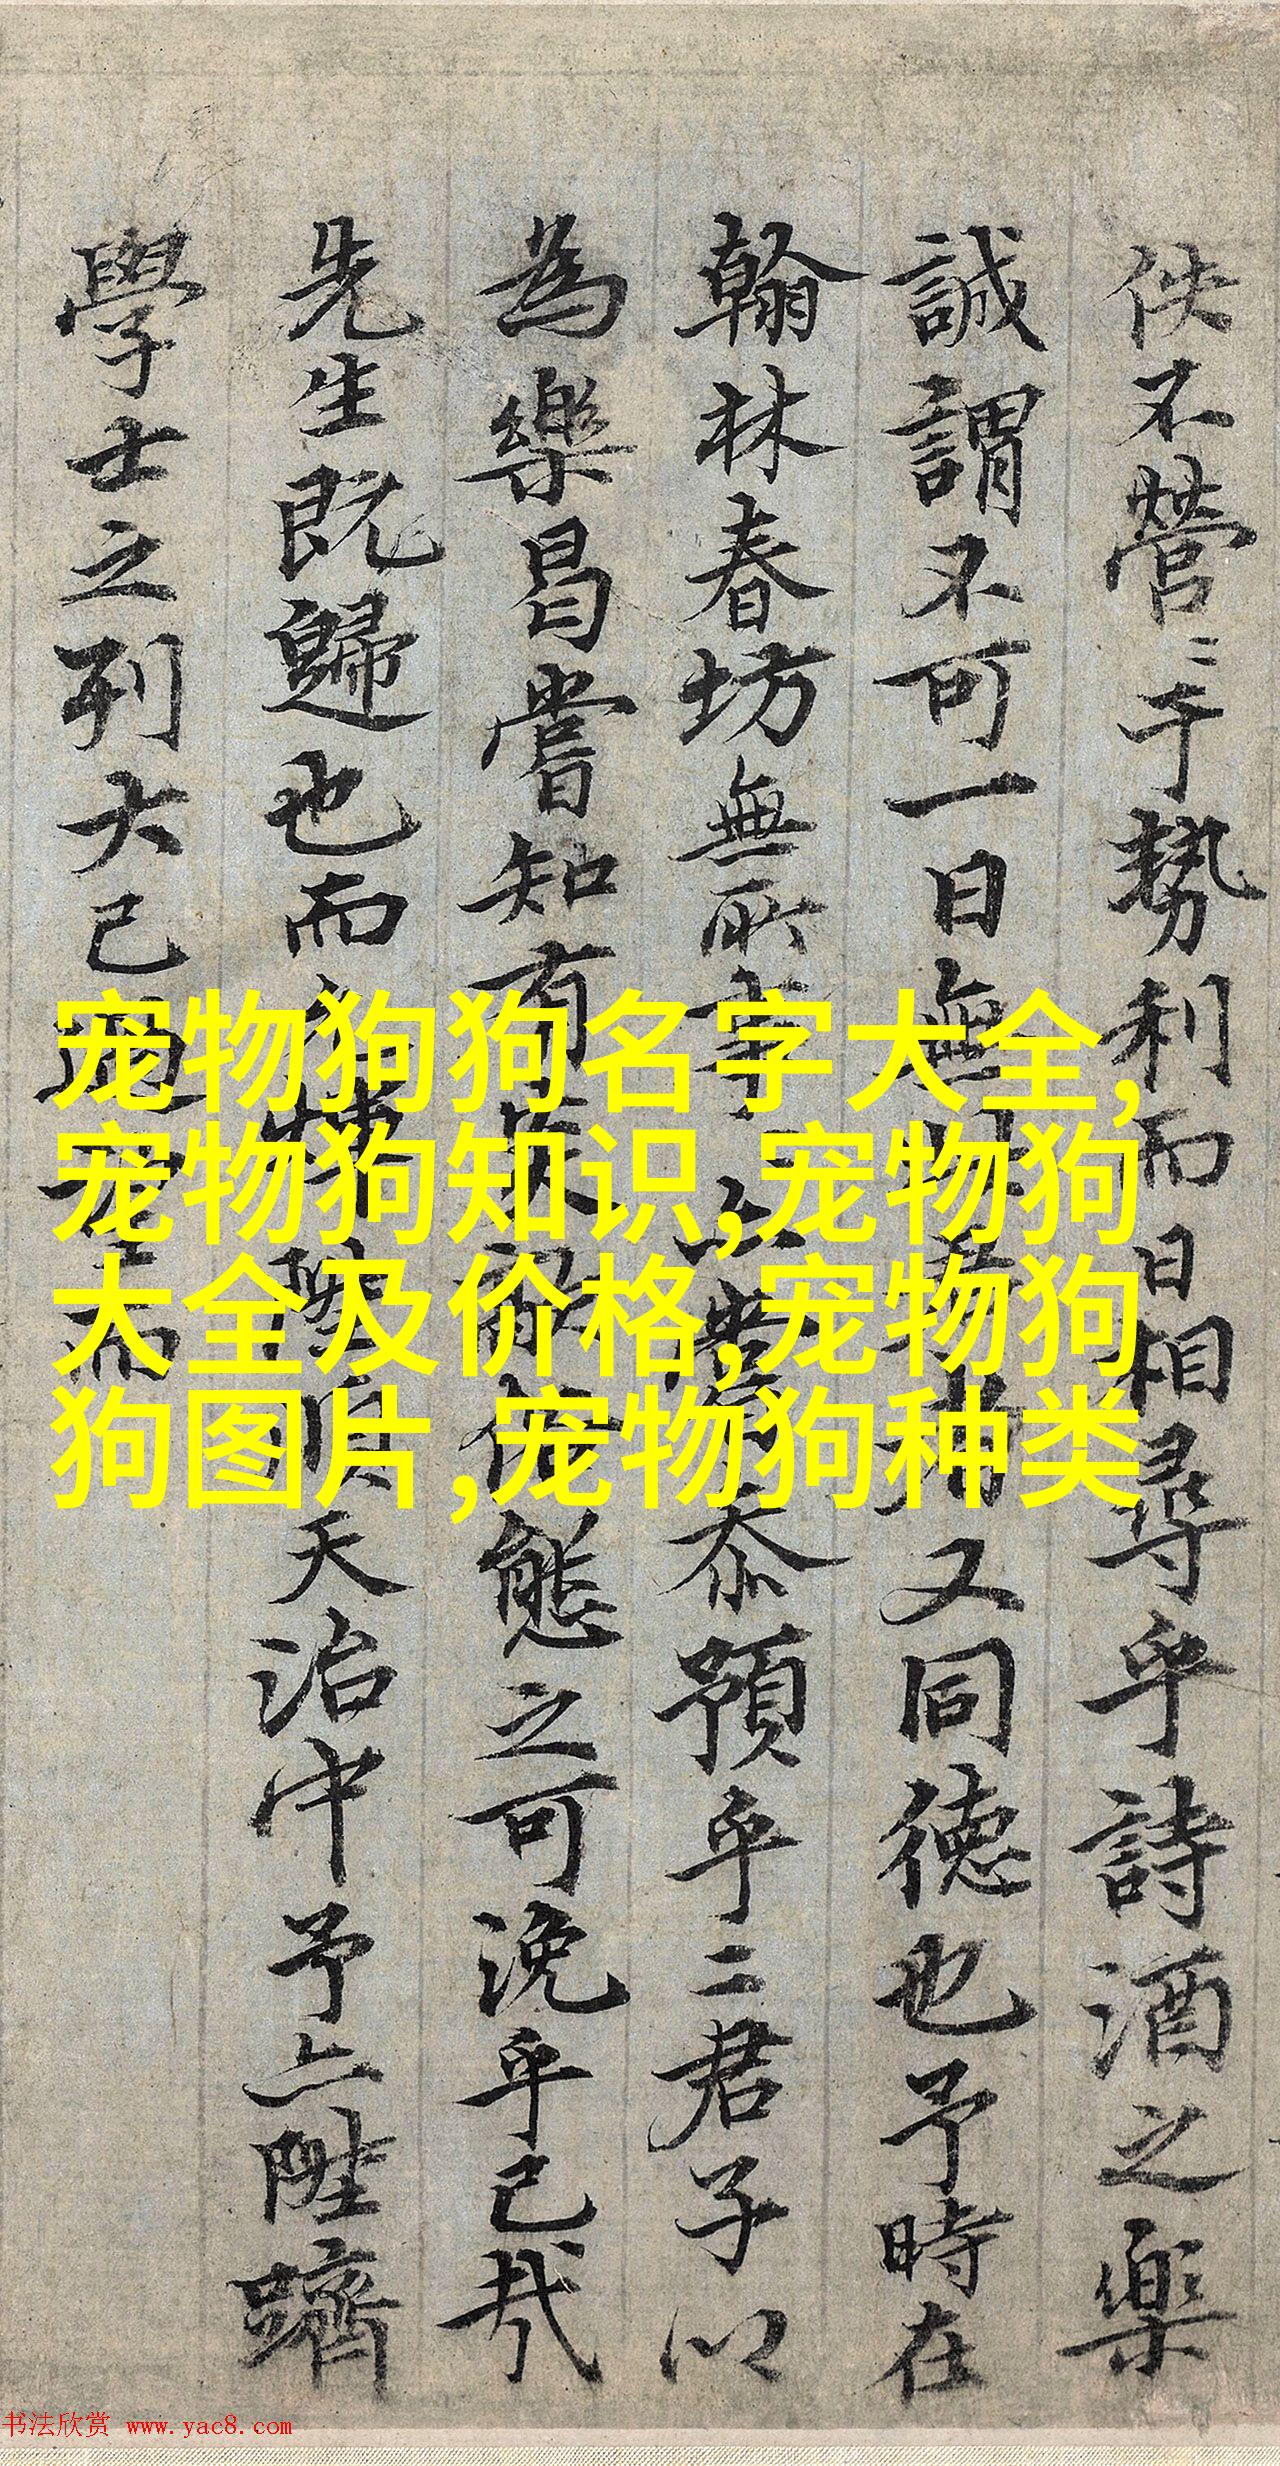 佚不營〻于勢利而日相尋乎詩酒之樂
誠謂不可一日無 又同德也予時在
翰林春坊無所事 预乎二君子以
為樂曷嘗知有 態之可浼乎已哉
先生既歸也而 順天治中予亦陞躋
學士之列大已 而
宠物狗狗名字大全,
宠物狗知识,宠物狗
大全及价格,宠物狗
狗图片,宠物狗种类
书法欣赏 www.yac8.com